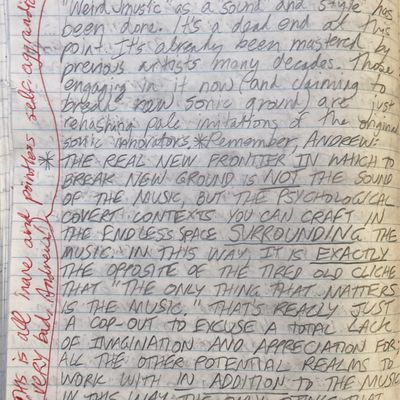 "Weird music" as a sound and style has
been done. It's a dead end at this
point. It's already been mastered by
previous artists many decades. Those
engaging in it now (and claiming to
break new sonic ground) are just
rehashing pale imitations of the original
sonic innovators. *Remember, ANDREW:
* THE REAL NEW FRONTIER IN WHICH TO
BREAK NEW GROUND IS NOT THE SOUND
OF THE MUSIC, BUT THE PSYCHOLOGICAL
COVERT CONTEXTS YOU CAN CRAFT IN
THE ENDLESS SPACE SURROUNDING THE
MUSIC. IN THIS WAY, IT IS EXACTLY
THE OPPOSITE OF THE TIRED OLD CLICHE
THAT "THE ONLY THING THAT MATTERS
IS THE MUSIC." THAT'S REALLY JUST
A COP-OUT TO EXCUSE A TOTAL LACK
OF IMAGINATION AND APPRECIATION FOR
ALL THE OTHER POTENTIAL REALMS TO
WORK WITH IN ADDITION TO THE MUSIC
IN THIS WAY, THE ONLY THING THAT
This is all inane and pointless self-aggrandi
VERY bad, Andrew